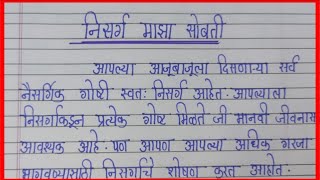 निसर्ग माझा सोबती
आपल्या आजूबाजूला दिसणाऱ्या सर्व
नैसर्गिक गोष्टी स्वतः निसर्ग आहेत. आपल्याला
निसर्गाकडून प्रत्येक गोष्ट मिळते जी मानवी जीवनास
आवश्यक आहे. पण आपण आपल्या अधिक गरजा
भागवण्यासाठी निसर्गाचे शोषण करत आहोत.